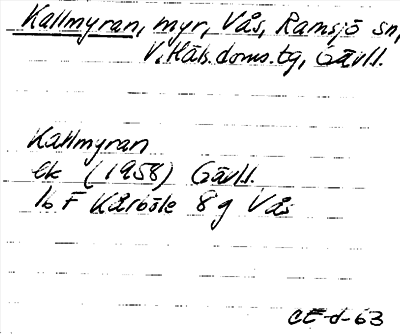 Kallmyran, myr, Vås, Ramsjö sn,
V. Häls. doms. tg, Gävll.
Kallmyran
ek (1958) Gävll.
16 F Kårböle 8 g Vås
CE-d-63